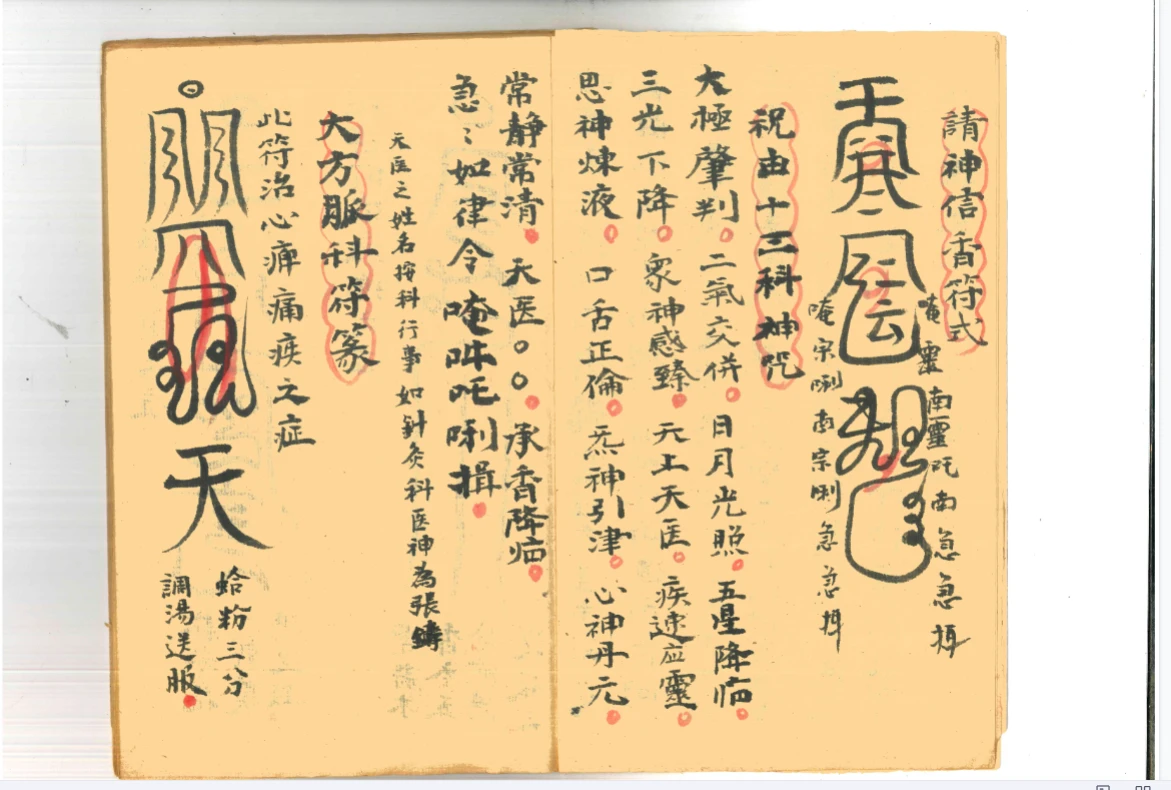 請神信香符式
唵靈南靈吒南急急揖
唵宗唎南宗唎急急揖
祝由十三科神咒
太極肇判。二氣交併。日月光照。五星降临。
三光下降。眾神感臻。天上天医。疾速应靈。
思神煉液。口舌正倫。炁神引津。心神丹元。
常静常清。天医〇〇。承香降临。
急〻如律令唵吽吒唎揖。
天医之姓名按科行事如針灸科医神為張鑄
大方脈科符篆
此符治心痺痛疾之症
天
蛤粉三分
調湯送服。